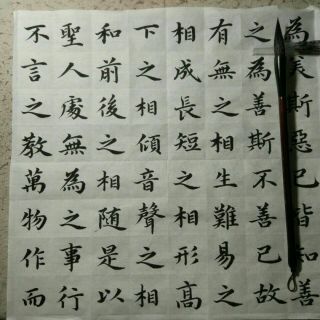 為美斯惡已皆知善
之為善斯不善已故
有無之相生難易之
相成長短之相形高
下之相傾音聲之相
和前後之相随是以
聖人處無為之事行
不言之教萬物作而